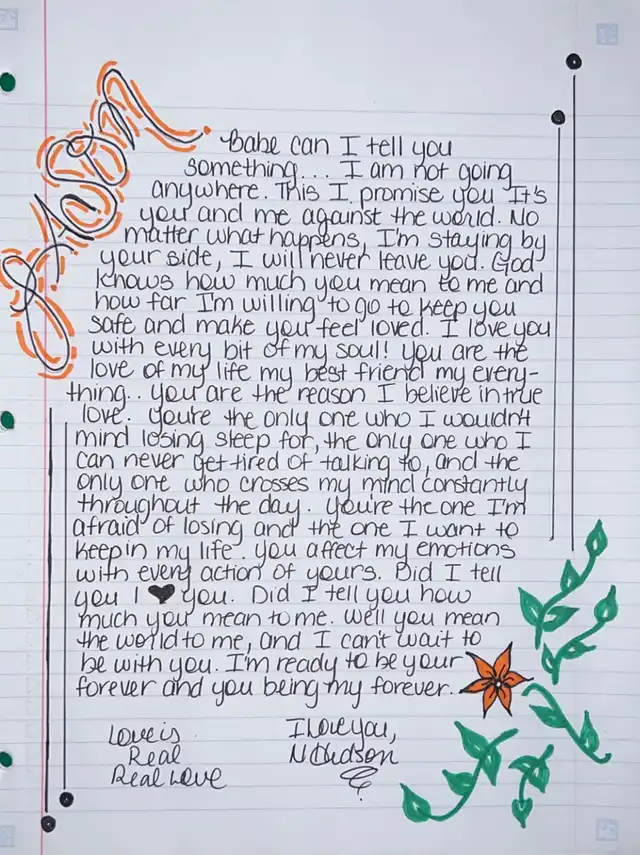 Babe can I tell you
something... I am not going
anywhere. This I promise you It's
you and me against the world. No
matter what happens, I'm staying by
your side, I will never leave you. God
knows how much you mean to me and
how far I'm willing to go to keep you
safe and make you feel loved. I love you
with every bit of my soul! You are the
love of my life my best friend my every-
thing.. you are the reason I believe in true
love. You're the only one who I wouldn't
mind losing sleep for, the only one who I
can never get tired of talking to, and the
only one who crosses my mind constantly
throughout the day. You're the one I'm
afraid of losing and the one I want to
keep in my life. You affect my emotions
with every action of yours. Did I tell
you I ♥ you. Did I tell you how
much you mean to me. Well you mean
the world to me, and I can't wait to
be with you. I'm ready to be your
forever and you being my forever.
Love is
Real
Real Love
I love you,